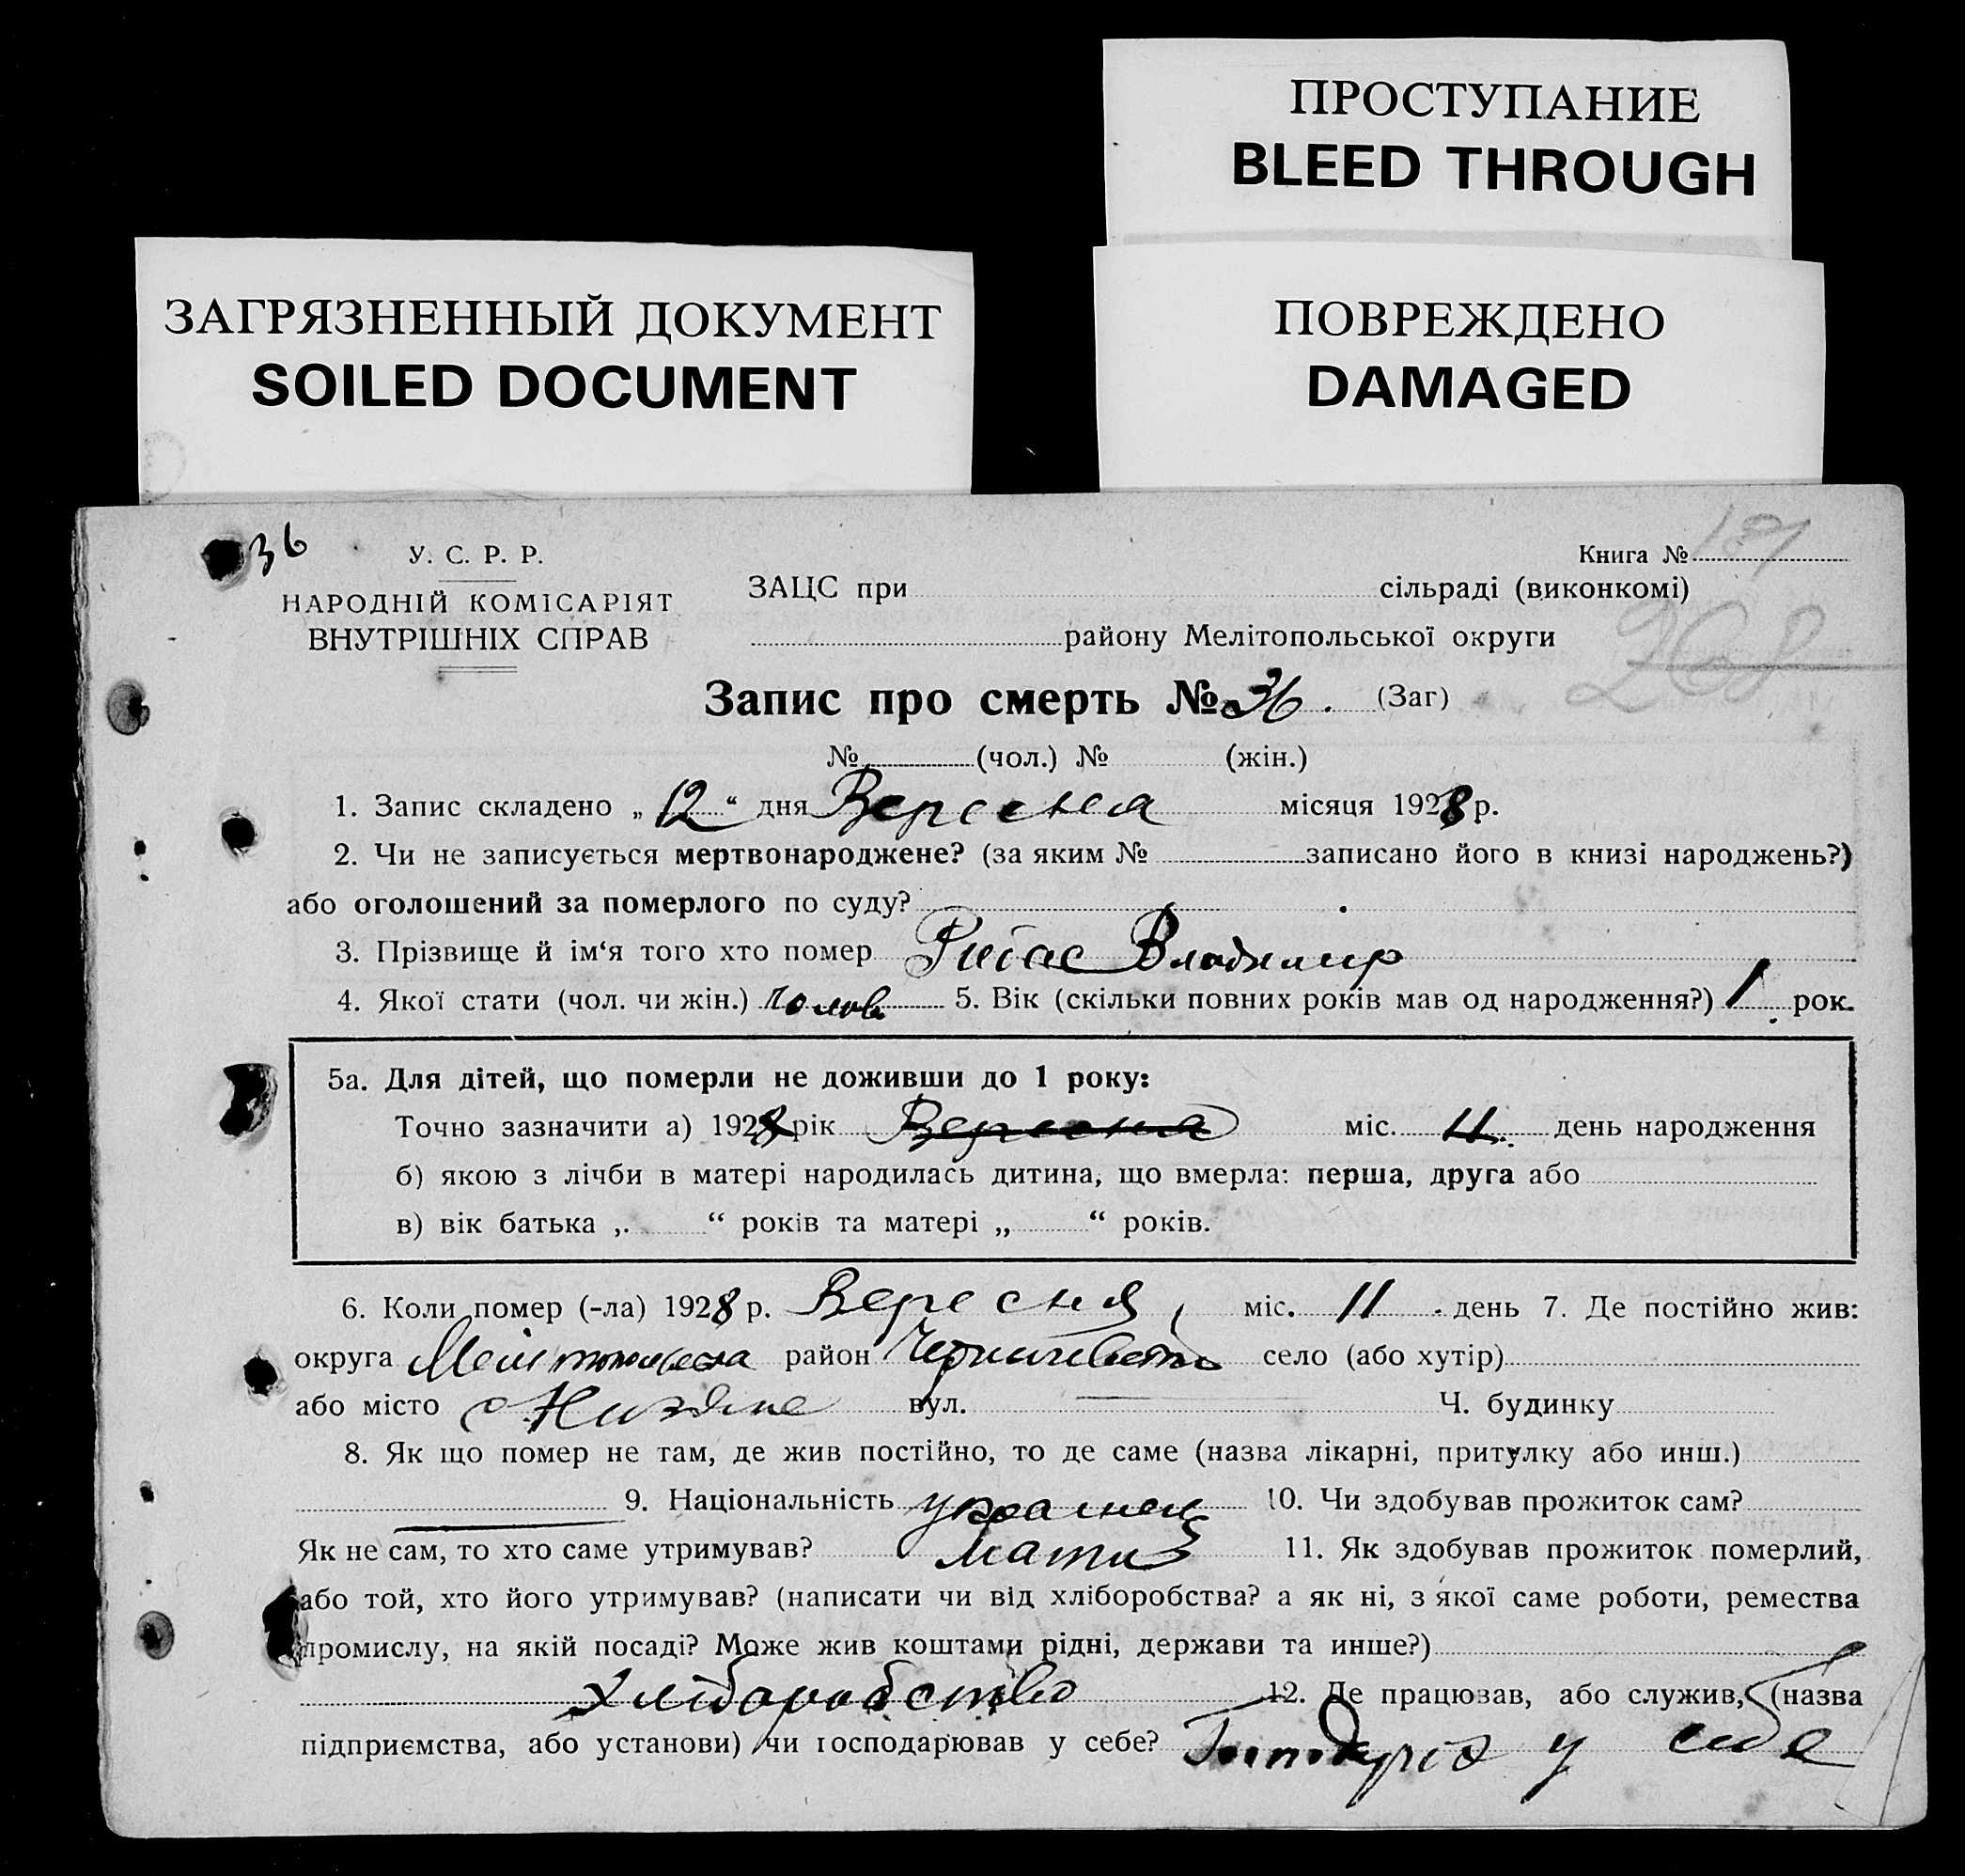 ПРОСТУПАНИЕ
BLEED THROUGH
ЗАГРЯЗНЕННЫЙ ДОКУМЕНТ
SOILED DOCUMENT
ПОВРЕЖДЕНО
DAMAGED
36
У. С. Р. Р.
НАРОДНІЙ КОМІСАРІЯТ
ВНУТРІШНІХ СПРАВ
Книга №
ЗАЦС при сільраді (виконкомі)
району Мелітопольської округи
Запис про смерть № 36. (Заг)
№ (чол.) № (жін.)
1. Запис складено „12“ дня Вересня місяця 1928 р.
2. Чи не записується мертвонароджене? (за яким № записано його в книзі народжень?)
або оголошений за померлого по суду?
3. Прізвище й ім‘я того хто помер Владимир
4. Якої стати (чол. чи жін.) чолов 5. Вік (скільки повних років мав од народження?) 1 рок.
5а. Для дітей, що померли не доживши до 1 року:
Точно зазначити а) 1928 рік Вересня міс. 11 день народження
б) якою з лічби в матері народилась дитина, що вмерла: перша, друга або
в) вік батька „ “ років та матері „ “ років.
6. Коли помер (-ла) 1928 р. Вересня, міс. 11 день 7. Де постійно жив:
округа район село (або хутір)
або місто вул. Ч. будинку
8. Як що помер не там, де жив постійно, то де саме (назва лікарні, притулку або инш.)
9. Національність українец 10. Чи здобував прожиток сам?
Як не сам, то хто саме утримував? мати 11. Як здобував прожиток померлий,
або той, хто його утримував? (написати чи від хліборобства? а як ні, з якої саме роботи, ремества
промислу, на якій посаді? Може жив коштами рідні, держави та инше?)
хліборобство 12. Де працював, або служив, (назва
підприємства, або установи) чи господарював у себе? у себе